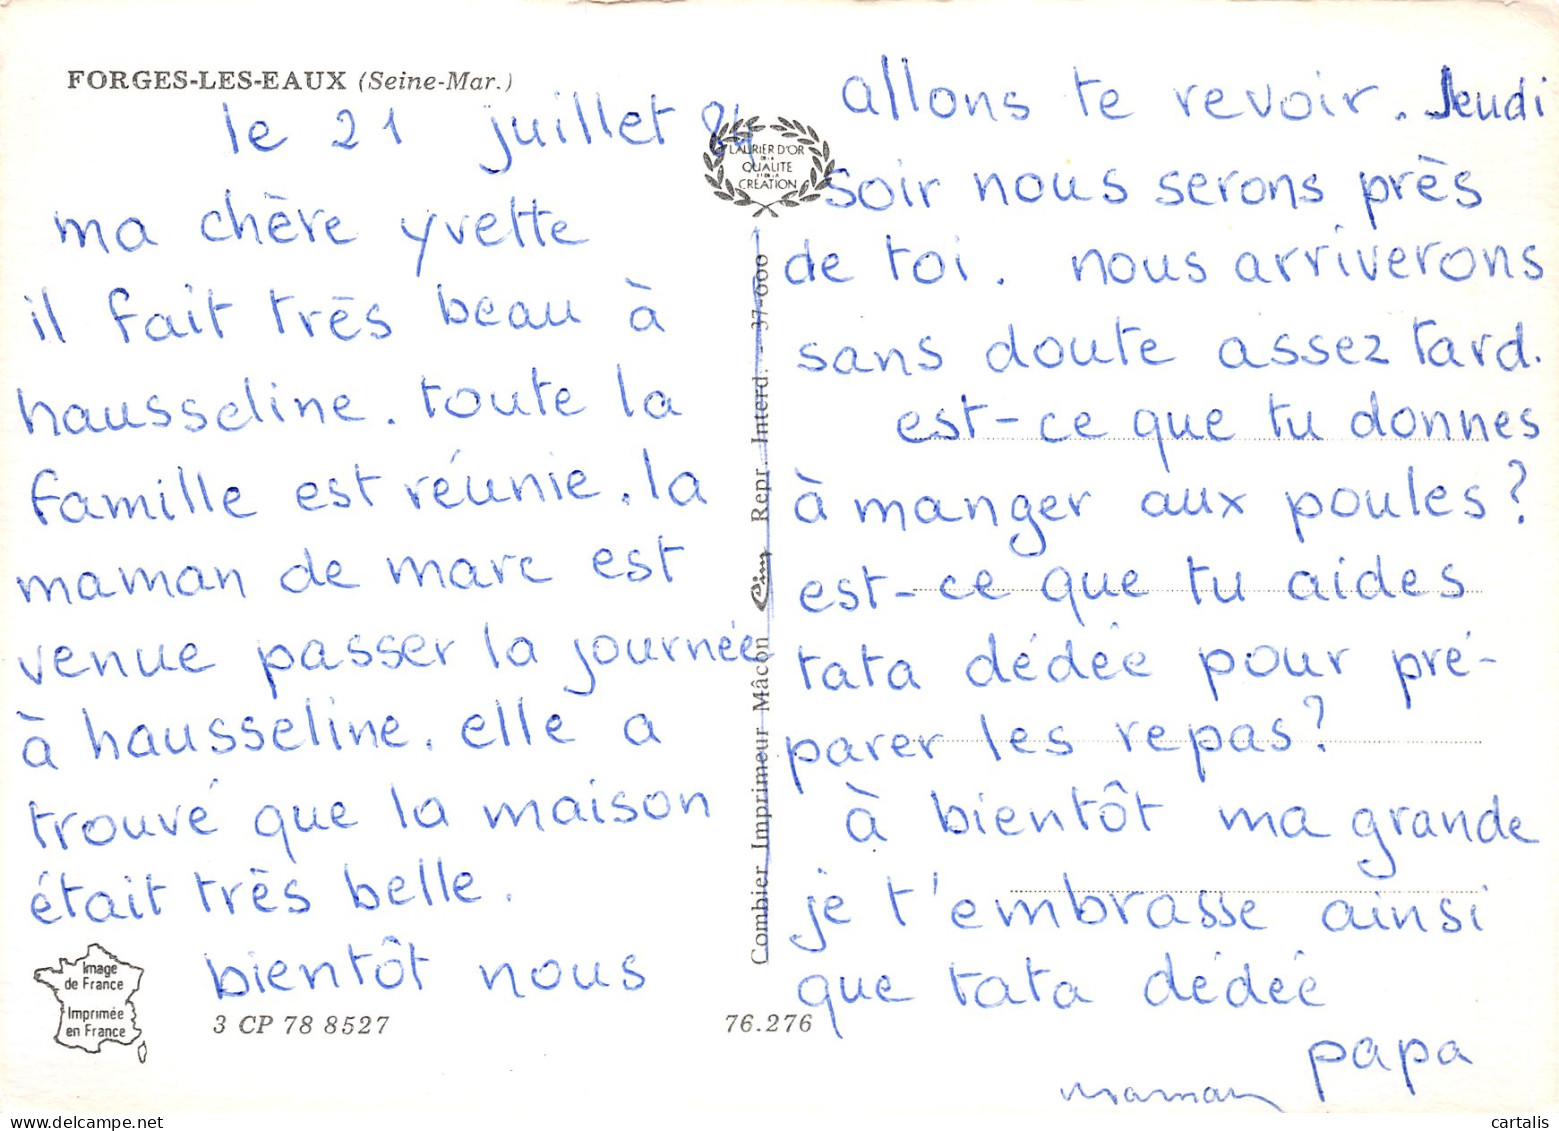 FORGES-LES-EAUX (Seine-Mar.)
le 21 juillet 84
ma chère yvette
il fait très beau à
hausseline. toute la
famille est réunie. la
maman de marc est
venue passer la journée
à hausseline. elle a
trouvé que la maison
était très belle.
bientôt nous
Image
de France
Imprimée
en France
3 CP 78 8527
76.276
LAURIER D'OR
DE LA
QUALITE
ET DE LA
CREATION
Combier Imprimeur Mâcon Cim Repr. Interd. - 37-000
allons te revoir. Jeudi
soir nous serons près
de toi. nous arriverons
sans doute assez tard.
est-ce que tu donnes
à manger aux poules?
est-ce que tu aides
tata dédée pour pré-
parer les repas?
à bientôt ma grande
je t'embrasse ainsi
que tata dédée
papa
maman
cartalis